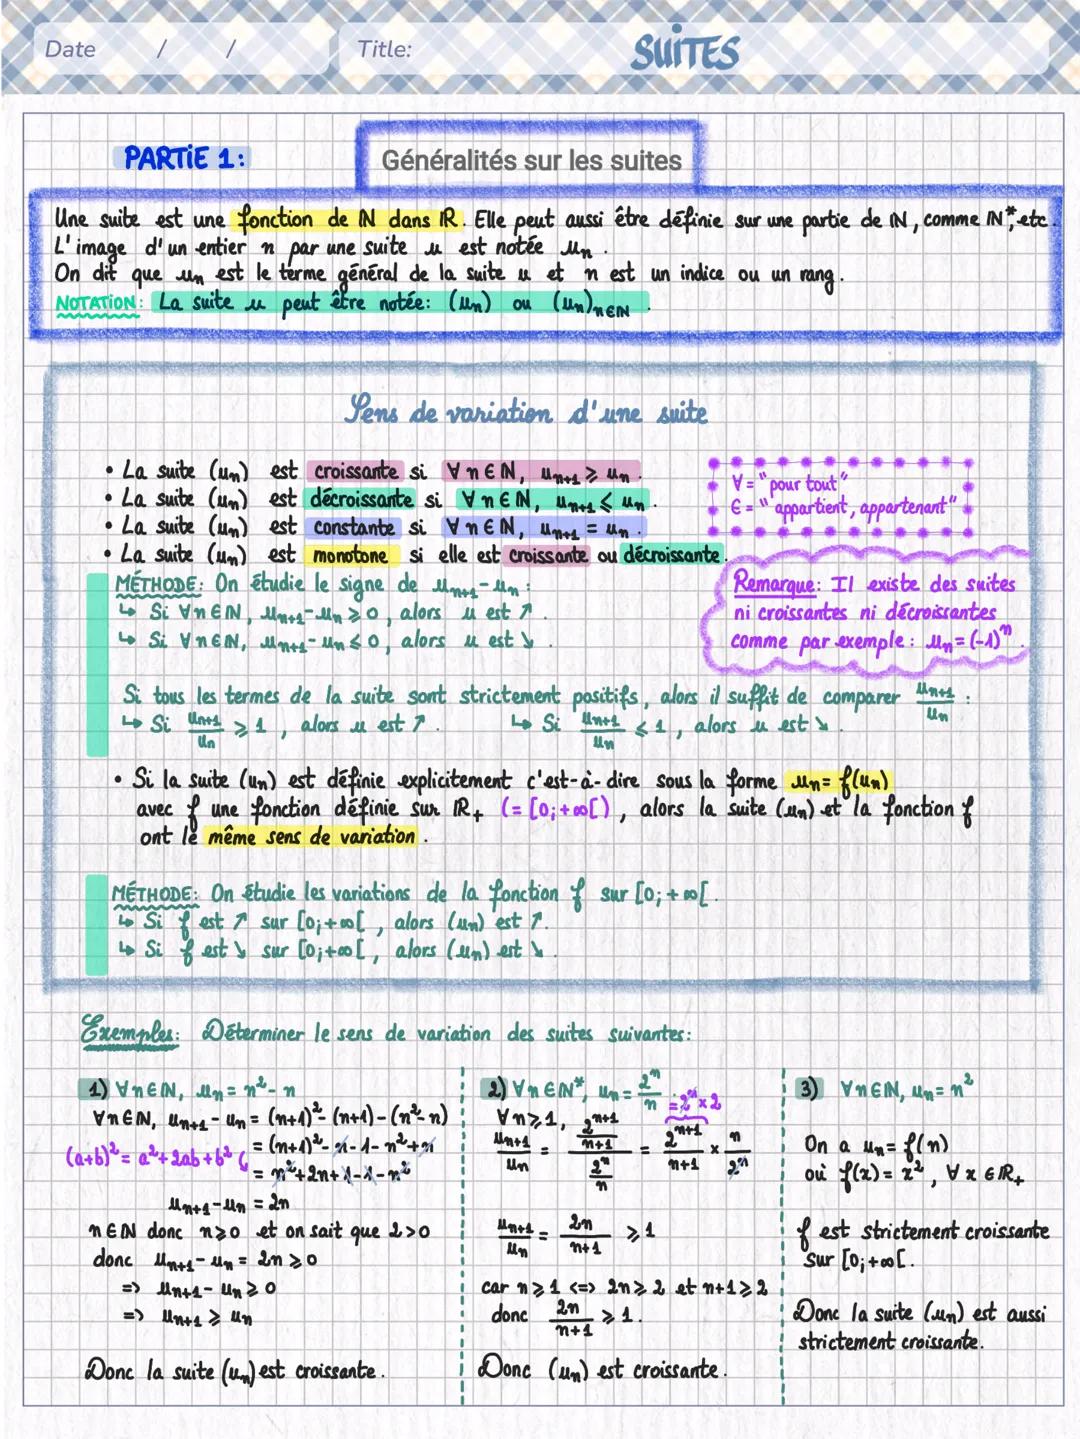 Date / / Title: SUITES
PARTIE 1: Généralités sur les suites
Une suite est une fonction de ℕ dans ℝ. Elle peut aussi être définie sur une partie de ℕ, comme ℕ*, etc.
L'image d'un entier n par une suite u est notée uₙ.
On dit que uₙ est le terme général de la suite u et n est un indice ou un rang.
NOTATION: La suite u peut être notée: (uₙ) ou (uₙ)ₙ∈ℕ.
Sens de variation d'une suite
• La suite (uₙ) est croissante si ∀n∈ℕ, uₙ₊₁ ≥ uₙ.
• La suite (uₙ) est décroissante si ∀n∈ℕ, uₙ₊₁ ≤ uₙ.
• La suite (uₙ) est constante si ∀n∈ℕ, uₙ₊₁ = uₙ.
• La suite (uₙ) est monotone si elle est croissante ou décroissante.
∀ = "pour tout"
∈ = "appartient, appartenant"
MÉTHODE: On étudie le signe de uₙ₊₁-uₙ :
↳ Si ∀n∈ℕ, uₙ₊₁-uₙ ≥ 0, alors u est ↗.
↳ Si ∀n∈ℕ, uₙ₊₁-uₙ ≤ 0, alors u est ↘.
Remarque: Il existe des suites
ni croissantes ni décroissantes
comme par exemple: uₙ=(-1)ⁿ.
Si tous les termes de la suite sont strictement positifs, alors il suffit de comparer uₙ₊₁/uₙ :
↳ Si uₙ₊₁/uₙ ≥ 1, alors u est ↗. ↳ Si uₙ₊₁/uₙ ≤ 1, alors u est ↘.
• Si la suite (uₙ) est définie explicitement c'est-à-dire sous la forme uₙ = f(uₙ)
avec f une fonction définie sur ℝ₊ (= [0;+∞[), alors la suite (uₙ) et la fonction f
ont le même sens de variation.
MÉTHODE: On étudie les variations de la fonction f sur [0;+∞[.
↳ Si f est ↗ sur [0;+∞[, alors (uₙ) est ↗.
↳ Si f est ↘ sur [0;+∞[, alors (uₙ) est ↘.
Exemples: Déterminer le sens de variation des suites suivantes:
1) ∀n∈ℕ, uₙ = n²-n
∀n∈ℕ, uₙ₊₁ - uₙ = (n+1)²-(n+1)-(n²-n)
= (n+1)²-n-1-n²+n
(a+b)² = a²+2ab+b²
= n²+2n+1-1-n²
uₙ₊₁-uₙ = 2n
n∈ℕ donc n≥0 et on sait que 2>0
donc uₙ₊₁-uₙ = 2n ≥ 0
=> uₙ₊₁-uₙ ≥ 0
=> uₙ₊₁ ≥ uₙ
Donc la suite (uₙ) est croissante.
2) ∀n∈ℕ*, uₙ = 2ⁿ/n
= 2ⁿ×2
∀n≥1,
uₙ₊₁/uₙ = (2ⁿ⁺¹/(n+1))/(2ⁿ/n) = 2ⁿ⁺¹/(n+1) × n/2ⁿ
uₙ₊₁/uₙ = 2n/(n+1) ≥ 1
car n≥1 <=> 2n≥2 et n+1≥2
donc 2n/(n+1) ≥ 1.
Donc (uₙ) est croissante.
3) ∀n∈ℕ, uₙ = n²
On a uₙ = f(n)
où f(x) = x², ∀x∈ℝ₊
f est strictement croissante
sur [0;+∞[.
Donc la suite (uₙ) est aussi
strictement croissante.